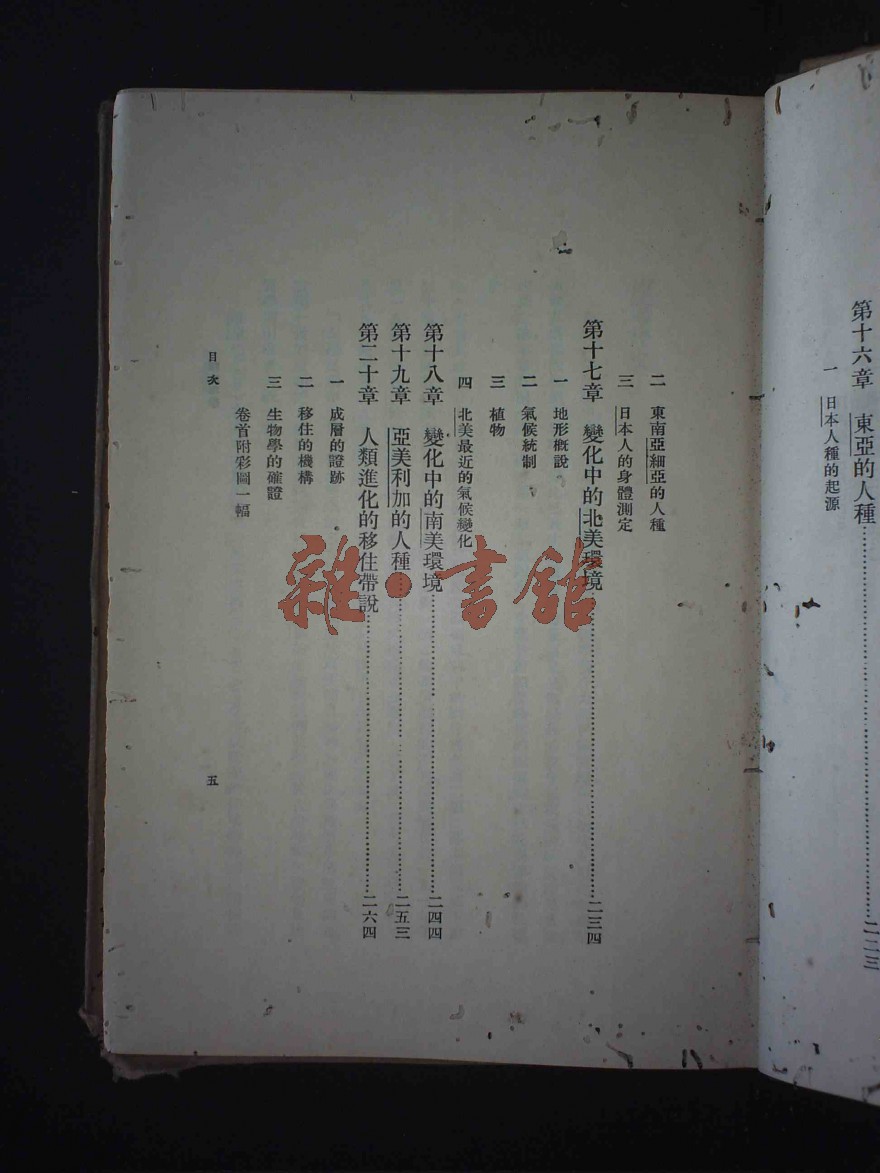 第十六章 東亞的人種……二二三
一 日本人種的起源
二 東南亞細亞的人種
三 日本人的身體測定
第十七章 變化中的北美環境……二三四
一 地形概說
二 氣候統制
三 植物
四 北美最近的氣候變化
第十八章 變化中的南美環境……二四四
第十九章 亞美利加的人種……二五三
第二十章 人類進化的移住帶說……二六四
一 成層的證跡
二 移住的機構
三 生物學的確證
卷首附彩圖一幅
目次
五
雜·書館